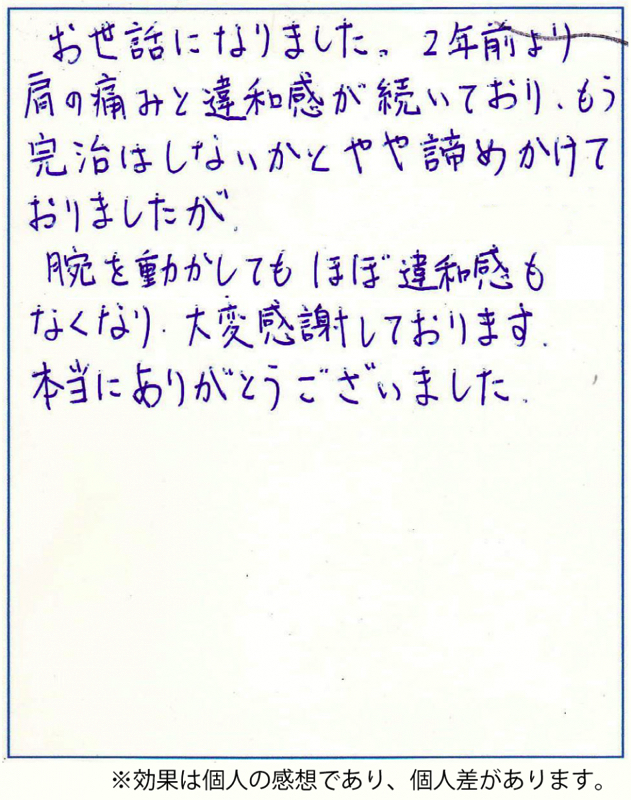 お世話になりました。2年前より
肩の痛みと違和感が続いており、もう
完治はしないかとやや諦めかけて
おりましたが、
腕を動かしてもほぼ違和感も
なくなり、大変感謝しております。
本当にありがとうございました。
※効果は個人の感想であり、個人差があります。